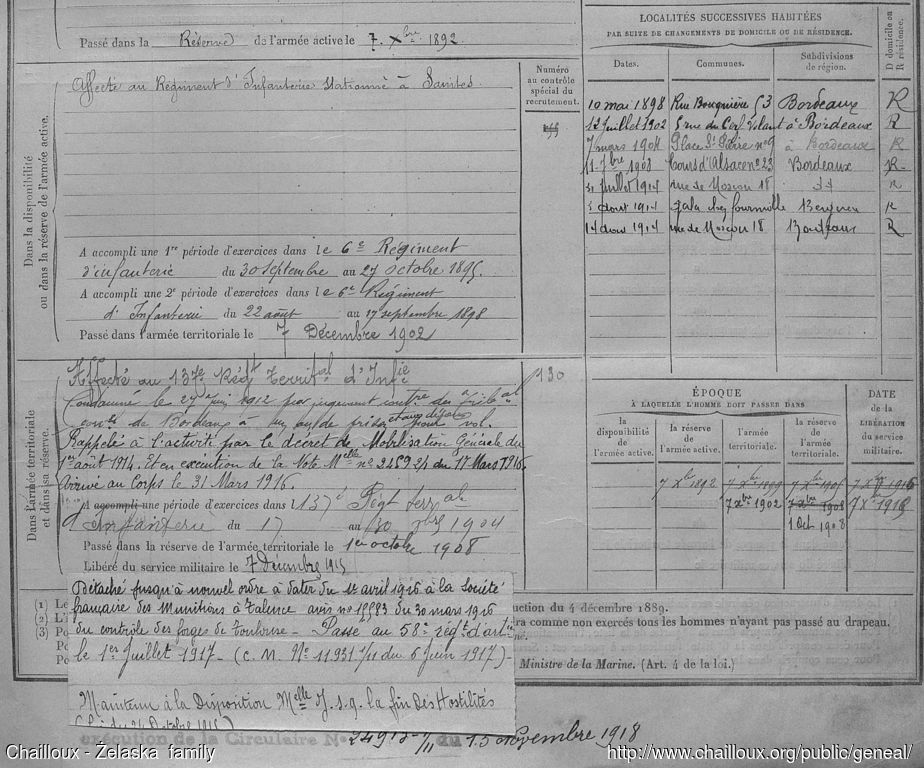 Passé dans la Réserve de l'armée active le 7 Xbre 1892
Dans la disponibilité
ou dans la réserve de l'armée active.
Affecté au Régiment d'Infanterie Stationné à Saintes
A accompli une 1re période d'exercices dans le 6e Régiment
d'infanterie du 30 septembre au 27 octobre 1895.
A accompli une 2e période d'exercices dans le 6e Régiment
d'Infanterie du 22 août au 17 septembre 1898
Passé dans l'armée territoriale le 7 Décembre 1902
Numéro
au contrôle
spécial du
recrutement.
LOCALITÉS SUCCESSIVES HABITÉES
PAR SUITE DE CHANGEMENTS DE DOMICILE OU DE RÉSIDENCE.
D domicile ou
R résidence.
Dates. Communes. Subdivisions
de région.
10 mai 1898 Rue Bouquière 53 Bordeaux R
12 Juillet 1902 5 rue du Cerf Volant à Bordeaux R
7 mars 1904 Place St Pierre no 9 à Bordeaux R
11 7bre 1908 Cours d'Alsace no 23 Bordeaux R
Juillet 1914 rue de Moscou 18 R
5 août 1914 chez Bergerac R
14 août 1914 rue de Moscou 18 Bordeaux R
Dans l'armée territoriale
et dans sa réserve.
Affecté au 137e Régt Territal d'Infie
130
Condamné le 27 Juin 1912 par jugement contre du Tribal
de Bordeaux à un an de prison pour vol.
Rappelé à l'activité par le décret de Mobilisation Générale du
1er août 1914. Et en exécution de la Note Melle no 2459 2/1 du 17 Mars 1916.
Arrivé au Corps le 31 Mars 1916.
A accompli une période d'exercices dans l 137e Regt terral
d'Infanterie du 17 au 30 9bre 1904
Passé dans la réserve de l'armée territoriale le 1er octobre 1908
Libéré du service militaire le 7 Décembre 1915
ÉPOQUE
À LAQUELLE L'HOMME DOIT PASSER DANS
DATE
de la
LIBÉRATION
du service
militaire.
la
disponibilité
de l'armée active.
la réserve
de
l'armée active.
l'armée
territoriale.
la réserve
de
l'armée
territoriale.
7 Xbre 1892 7 Xbre 1899 7 Xbre 1905 7 Xbre 1916
7 Xbre 1902 7 Xbre 1908 7 Xbre 1915
1 Oct 1908
Détaché jusqu'à nouvel ordre à dater du 1er avril 1916 à la Société
française des Munitions à Talence avis no 15583 du 30 mars 1916
du contrôle des forges de Toulouse - Passe au 58e régt d'artie
le 1er Juillet 1917 - (C. M. No 11931 1/11 du 6 Juin 1917)
Maintenu à la Disposition Melle J.s.q. la fin des Hostilités
(1) Le
(2) L'I
(3) Po
Po
Po
uction du 4 décembre 1889.
ra comme non exercés tous les hommes n'ayant pas passé au drapeau.
Ministre de la Marine. (Art. 4 de la loi.)
exécution de la Circulaire No 24913 1/11 du 15 Novembre 1918
Chailloux - Żelaska family
http://www.chailloux.org/public/geneal/